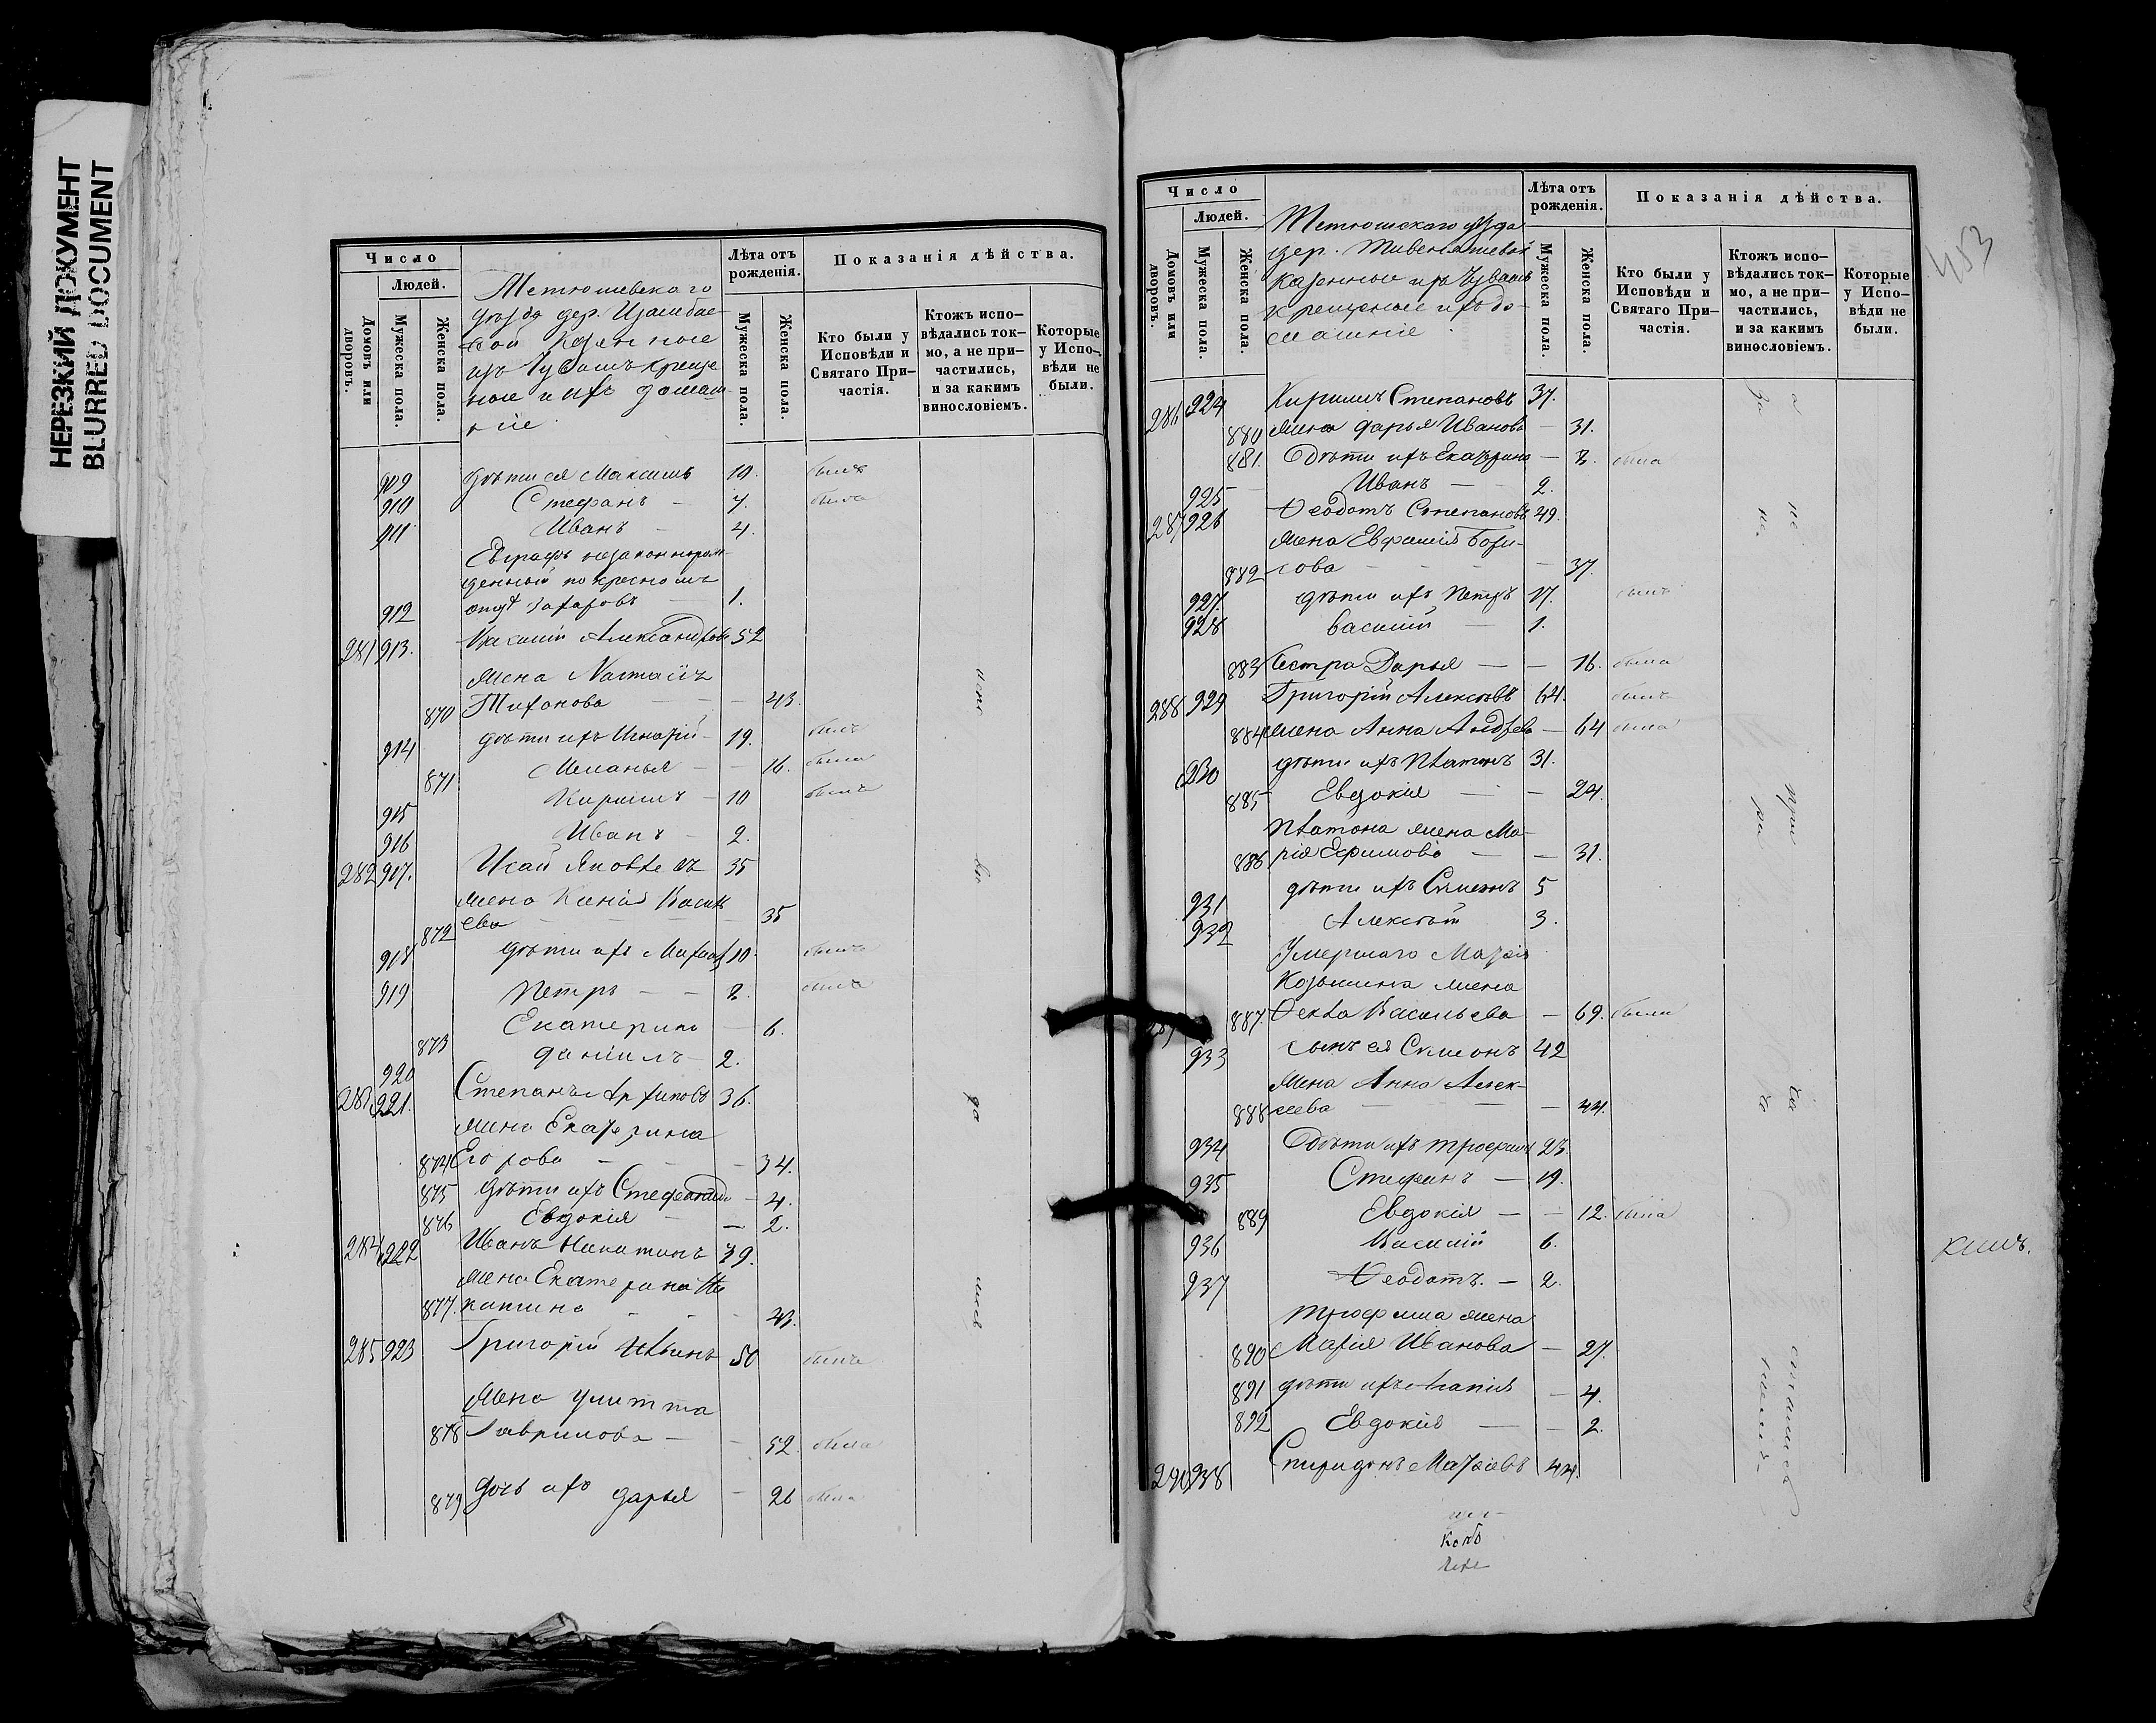 НЕРЕЗКИЙ ДОКУМЕНТ
BLURRED DOCUMENT
Число
Людей.
Домовъ или дворовъ.
Мужеска пола.
Женска пола.
уѣзда дер.
Казенные
изъ Чувашъ креще
ные и ихъ домаш-
ніе
Лѣта отъ рожденія.
Мужеска пола.
Женска пола.
Показанія дѣйства.
Кто были у Исповѣди и Святаго При-частія.
Ктожъ испо-вѣдались ток-мо, а не при-частились, и за какимъ винословіемъ.
Которые у Испо-вѣди не были.
909 дѣти ея Максимъ 10. былъ
910 Стефанъ - 7. былъ
911 Иванъ - 4.
Евграфъ незаконнорож-
денный по крестномъ
912 отцѣ Захаровъ 1.
281 913. Василій Александровъ 52
жена
870 Тихонова - 43.
914 дѣти ихъ - 19. былъ
871 Меланья - 16. была
915 Кириллъ - 10 былъ
916 Иванъ - 2.
282 917. Исай Яковлевъ 35
жена Ксенія Василь
872 ева 35
918 дѣти ихъ Михаил 10. былъ
919 Петръ - - 8. былъ
873 Екатерина - 6.
920 Даніилъ - 2.
283 921. Степанъ Архиповъ 36.
жена Екатерина
874 Егорова - 34.
875 дѣти ихъ - 4.
876 Евдокія - 2.
284 922 Иванъ Никитинъ 39.
жена Екатерина Ни
877. китина - 43.
285 923 Григорій Ильинъ 50 былъ
жена Улитта
878 Гаврилова - 52. была
879 дочь ихъ Дарья - 26 была
испо
вѣ
да
лись
453
Число
Людей.
Домовъ или дворовъ.
Мужеска пола.
Женска пола.
Тетюшскаго уѣзда
дер.
Казенные изъ Чувашъ
крещеные и ихъ до-
машніе
Лѣта отъ рожденія.
Мужеска пола.
Женска пола.
Показанія дѣйства.
Кто были у Исповѣди и Святаго При-частія.
Ктожъ испо-вѣдались ток-мо, а не при-частились, и за какимъ винословіемъ.
Которые у Испо-вѣди не были.
286 924 Кириллъ Степановъ 37.
880 жена Дарья Иванова - 31.
881. Дѣти ихъ Екатерина - 8. была
925 Иванъ - 2.
287 926 Ѳеодотъ Степановъ 49.
жена Евфимія Бори-
882 сова - 37.
927. дѣти ихъ Петръ 17. былъ
928 Василій - 1.
883 Сестра Дарья - 16. была
288 929 Григорій Алексѣевъ 64. былъ
884 жена Анна Андреева - 64 была
930 дѣти ихъ Платонъ 31.
885 Евдокія - 24.
Платона жена Ма-
886 рія Ефимова - 31.
931 дѣти ихъ Симеонъ 5
932 Алексѣй 3.
Умершаго
Козьмина жена
887. Ѳекла Васильева - 69. была
933 сынъ ея Симеонъ 42
жена Анна Алек-
888 сеева - 44.
934 Дѣти ихъ Трофимъ 23.
935 Стефанъ - 19.
889 Евдокія - 12. была
936 Василій 6.
937 Ѳеодотъ. - 2.
Трофима жена
890 Марія Иванова - 27.
891 дѣти ихъ - 4.
892 Евдокія - 2.
290 938 Спиридонъ 44.
а
не
при
ча
стились
за
не
ра